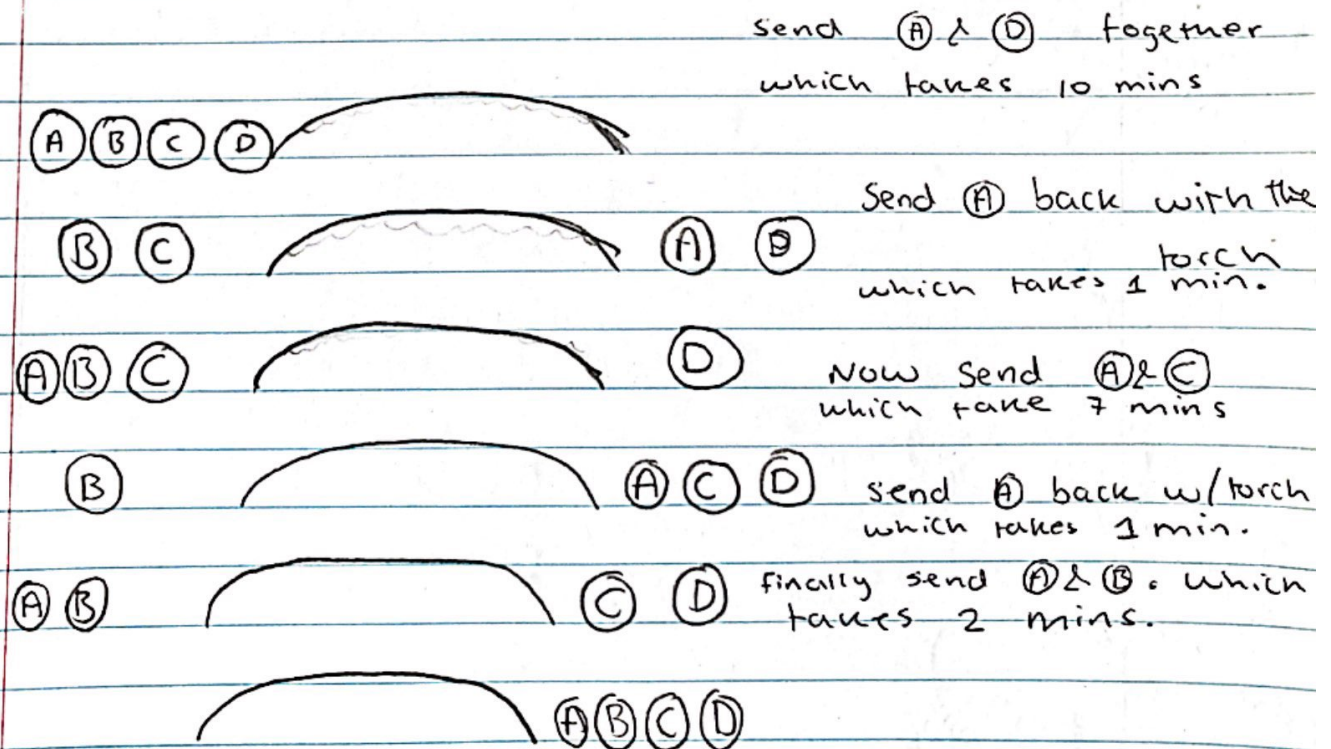 send Ⓐ & Ⓓ together
which takes 10 mins
Ⓐ Ⓑ Ⓒ Ⓓ
Send Ⓐ back with the
torch
Ⓑ Ⓒ Ⓐ Ⓓ
which takes 1 min.
Ⓐ Ⓑ Ⓒ Ⓓ
Now send Ⓐ & Ⓒ
which take 7 mins
Ⓑ Ⓐ Ⓒ Ⓓ send Ⓐ back w/torch
which takes 1 min.
Ⓐ Ⓑ Ⓒ Ⓓ finally send Ⓐ & Ⓑ. which
takes 2 mins.
Ⓐ Ⓑ Ⓒ Ⓓ